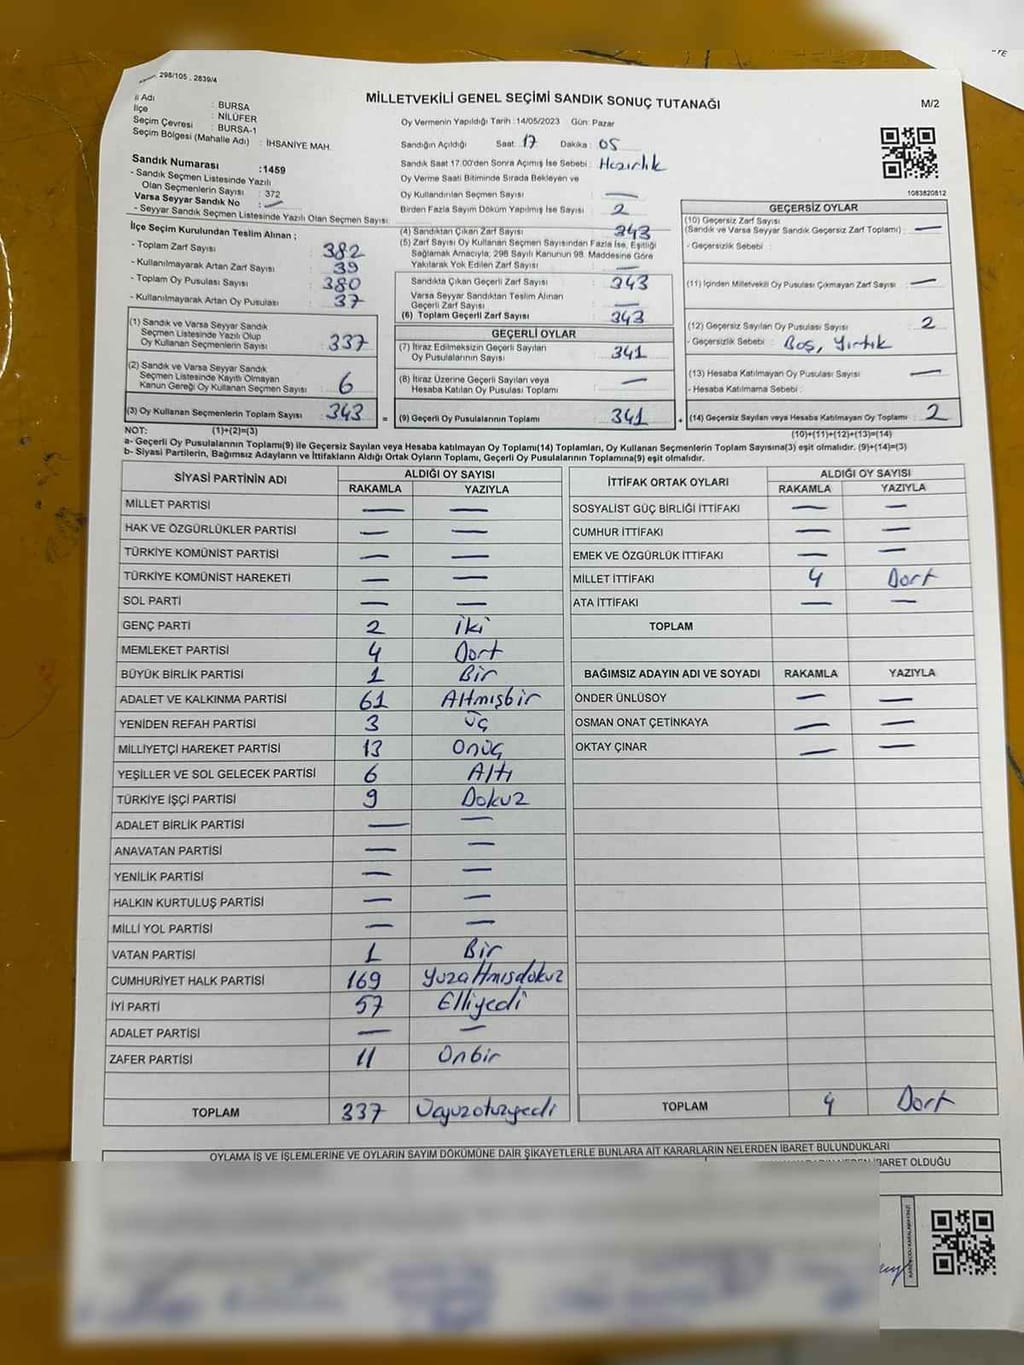 298/105 , 2839/4
MİLLETVEKİLİ GENEL SEÇİMİ SANDIK SONUÇ TUTANAĞI
M/2
İl Adı : BURSA
İlçe : NİLÜFER
Seçim Çevresi : BURSA-1
Seçim Bölgesi (Mahalle Adı) : İHSANİYE MAH.
Sandık Numarası :1459
- Sandık Seçmen Listesinde Yazılı
Olan Seçmenlerin Sayısı : 372
Varsa Seyyar Sandık No : —
- Seyyar Sandık Seçmen Listesinde Yazılı Olan Seçmen Sayısı:
Oy Vermenin Yapıldığı Tarih :14/05/2023 Gün: Pazar
Sandığın Açıldığı Saat: 17 Dakika : 05
Sandık Saat 17.00'den Sonra Açımış İse Sebebi : Hazırlık
Oy Verme Saati Bitiminde Sırada Bekleyen ve
Oy Kullandırılan Seçmen Sayısı : —
Birden Fazla Sayım Döküm Yapılmış İse Sayısı : 2
1083820812
İlçe Seçim Kurulundan Teslim Alınan ;
- Toplam Zarf Sayısı : 382
- Kullanılmayarak Artan Zarf Sayısı : 39
- Toplam Oy Pusulası Sayısı : 380
- Kullanılmayarak Artan Oy Pusulası : 37
(1) Sandık ve Varsa Seyyar Sandık
Seçmen Listesinde Yazılı Olup
Oy Kullanan Seçmenlerin Sayısı : 337
(2) Sandık ve Varsa Seyyar Sandık
Seçmen Listesinde Kayıtlı Olmayan
Kanun Gereği Oy Kullanan Seçmen Sayısı : 6
(3) Oy Kullanan Seçmenlerin Toplam Sayısı : 343
(4) Sandıktan Çıkan Zarf Sayısı : 343
(5) Zarf Sayısı Oy Kullanan Seçmen Sayısından Fazla İse, Eşitliği
Sağlamak Amacıyla; 298 Sayılı Kanunun 98. Maddesine Göre
Yakılarak Yok Edilen Zarf Sayısı : —
Sandıkta Çıkan Geçerli Zarf Sayısı : 343
Varsa Seyyar Sandıktan Teslim Alınan
Geçerli Zarf Sayısı : —
(6) Toplam Geçerli Zarf Sayısı : 343
GEÇERLİ OYLAR
(7) İtiraz Edilmeksizin Geçerli Sayılan
Oy Pusulalarının Sayısı : 341
(8) İtiraz Üzerine Geçerli Sayılan veya
Hesaba Katılan Oy Pusulası Toplamı : —
= (9) Geçerli Oy Pusulalarının Toplamı : 341
GEÇERSİZ OYLAR
(10) Geçersiz Zarf Sayısı
(Sandık ve Varsa Seyyar Sandık Geçersiz Zarf Toplamı) : —
- Geçersizlik Sebebi :
(11) İçinden Milletvekili Oy Pusulası Çıkmayan Zarf Sayısı : —
(12) Geçersiz Sayılan Oy Pusulası Sayısı : 2
- Geçersizlik Sebebi : Boş, Yırtık
(13) Hesaba Katılmayan Oy Pusulası Sayısı : —
- Hesaba Katılmama Sebebi :
+ (14) Geçersiz Sayılan veya Hesaba Katılmayan Oy Toplamı : 2
NOT: (1)+(2)=(3) (10)+(11)+(12)+(13)=(14)
a- Geçerli Oy Pusulalarının Toplamı(9) ile Geçersiz Sayılan veya Hesaba katılmayan Oy Toplamı(14) Toplamları, Oy Kullanan Seçmenlerin Toplam Sayısına(3) eşit olmalıdır. (9)+(14)=(3)
b- Siyasi Partilerin, Bağımsız Adayların ve İttifakların Aldığı Ortak Oyların Toplamı, Geçerli Oy Pusulalarının Toplamına(9) eşit olmalıdır.
SİYASİ PARTİNİN ADI ALDIĞI OY SAYISI
RAKAMLA YAZIYLA
MİLLET PARTİSİ — —
HAK VE ÖZGÜRLÜKLER PARTİSİ — —
TÜRKİYE KOMÜNİST PARTİSİ — —
TÜRKİYE KOMÜNİST HAREKETİ — —
SOL PARTİ — —
GENÇ PARTİ 2 İki
MEMLEKET PARTİSİ 4 Dort
BÜYÜK BİRLİK PARTİSİ 1 Bir
ADALET VE KALKINMA PARTİSİ 61 Altmışbir
YENİDEN REFAH PARTİSİ 3 Üç
MİLLİYETÇİ HAREKET PARTİSİ 13 Onüç
YEŞİLLER VE SOL GELECEK PARTİSİ 6 Altı
TÜRKİYE İŞÇİ PARTİSİ 9 Dokuz
ADALET BİRLİK PARTİSİ — —
ANAVATAN PARTİSİ — —
YENİLİK PARTİSİ — —
HALKIN KURTULUŞ PARTİSİ — —
MİLLİ YOL PARTİSİ — —
VATAN PARTİSİ 1 Bir
CUMHURİYET HALK PARTİSİ 169 Yüzaltmışdokuz
İYİ PARTİ 57 Elliyedi
ADALET PARTİSİ — —
ZAFER PARTİSİ 11 Onbir
TOPLAM 337 Üçyüzotuzyedi
İTTİFAK ORTAK OYLARI ALDIĞI OY SAYISI
RAKAMLA YAZIYLA
SOSYALİST GÜÇ BİRLİĞİ İTTİFAKI — —
CUMHUR İTTİFAKI — —
EMEK VE ÖZGÜRLÜK İTTİFAKI — —
MİLLET İTTİFAKI 4 Dort
ATA İTTİFAKI — —
TOPLAM
BAĞIMSIZ ADAYIN ADI VE SOYADI RAKAMLA YAZIYLA
ÖNDER ÜNLÜSOY — —
OSMAN ONAT ÇETİNKAYA — —
OKTAY ÇINAR — —
TOPLAM 4 Dort
OYLAMA İŞ VE İŞLEMLERİNE VE OYLARIN SAYIM DÖKÜMÜNE DAİR ŞİKAYETLERLE BUNLARA AİT KARARLARIN NELERDEN İBARET BULUNDUKLARI
İBARET OLDUĞU